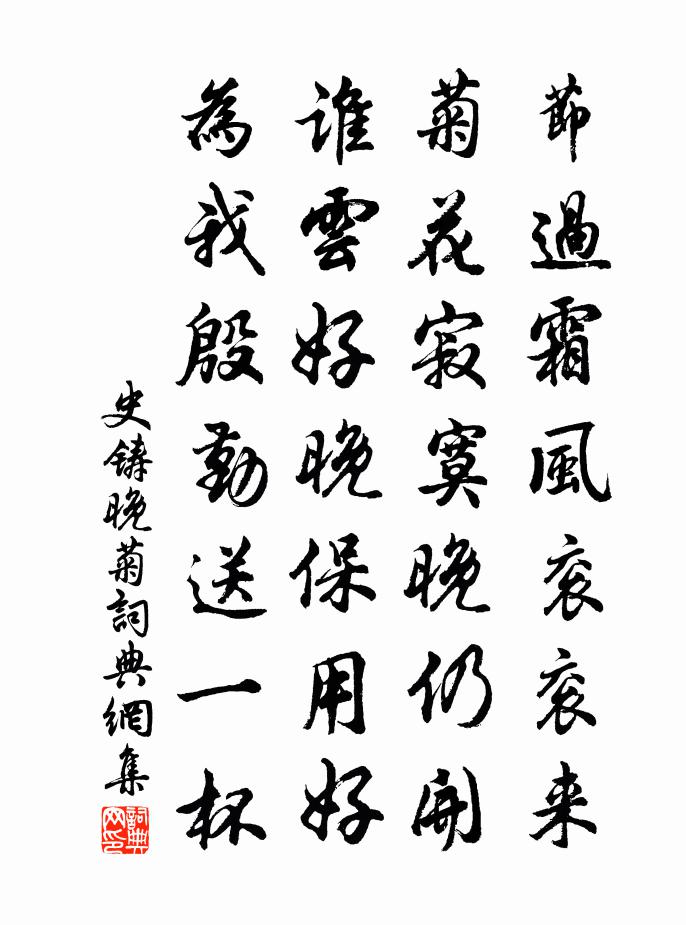 節過霜風衮衮来
菊花寂寞晚仍開
誰雲好晚保用好
為我殷勤送一杯
史鑄晚菊詞典網集
詞典网印